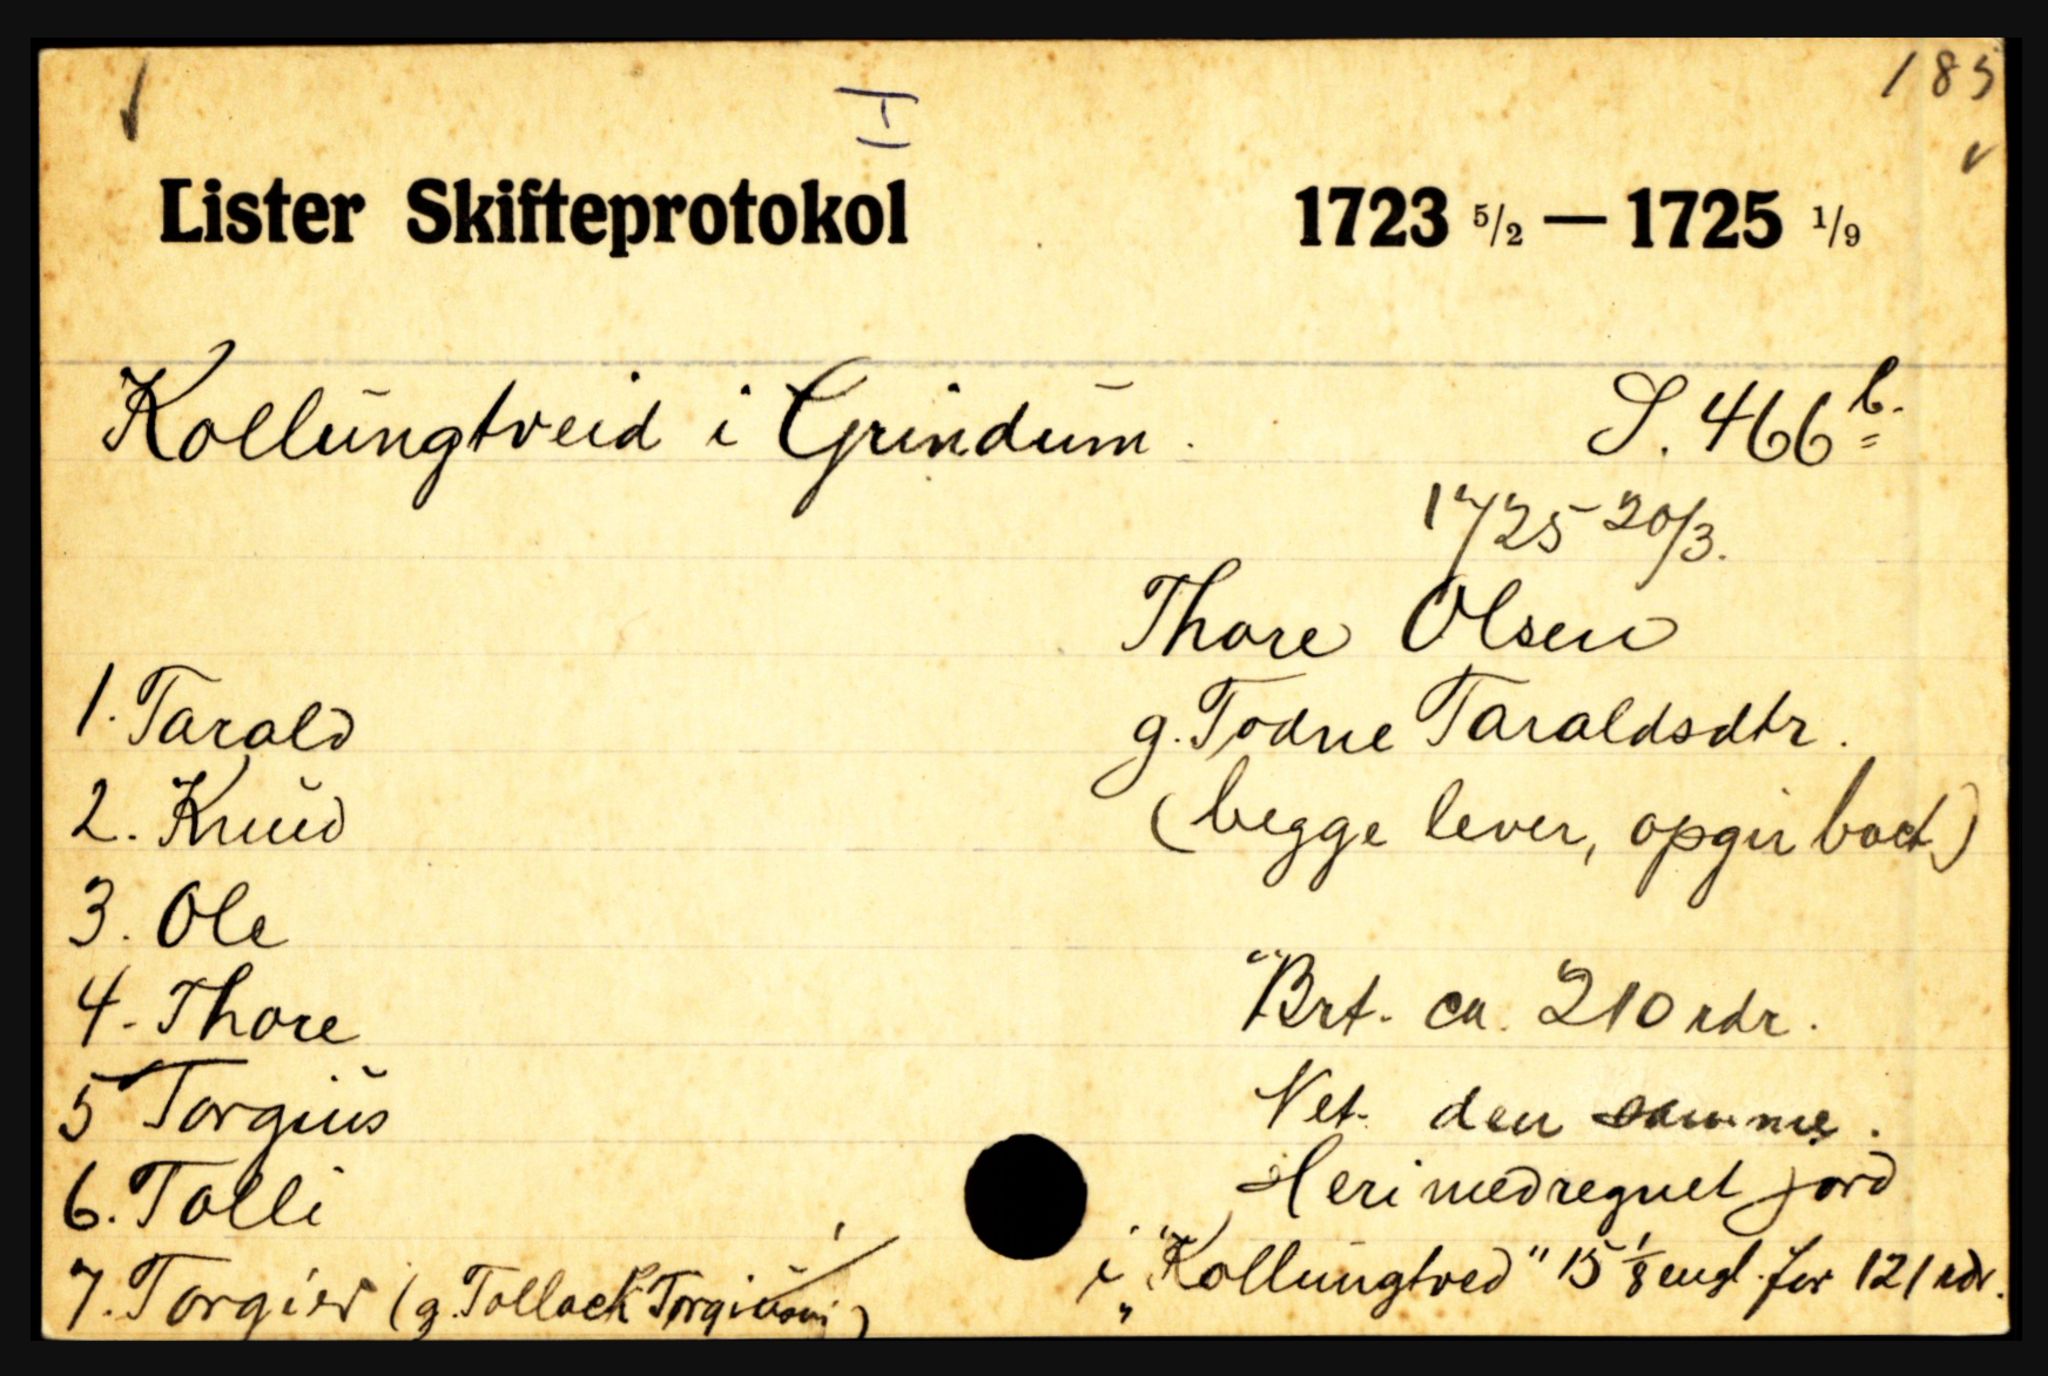 185
Lister Skifteprotokol 1723 5/2 — 1725 1/9
Kollungtveid i Grindum. S. 466 b.
1725 20/3.
Thore Olsen
1. Tarald g. Todne Taraldsdtr.
2. Knud (begge lever, opgir boet)
3. Ole
4. Thore Brt. ca. 210 rdr.
5 Torgius Net. den samme.
6. Tolli Heri medregnet jord
7. Torgier (g. Tollack Torgiusøn) i "Kollungtved" 15 1/8 engl. for 121 rdr.